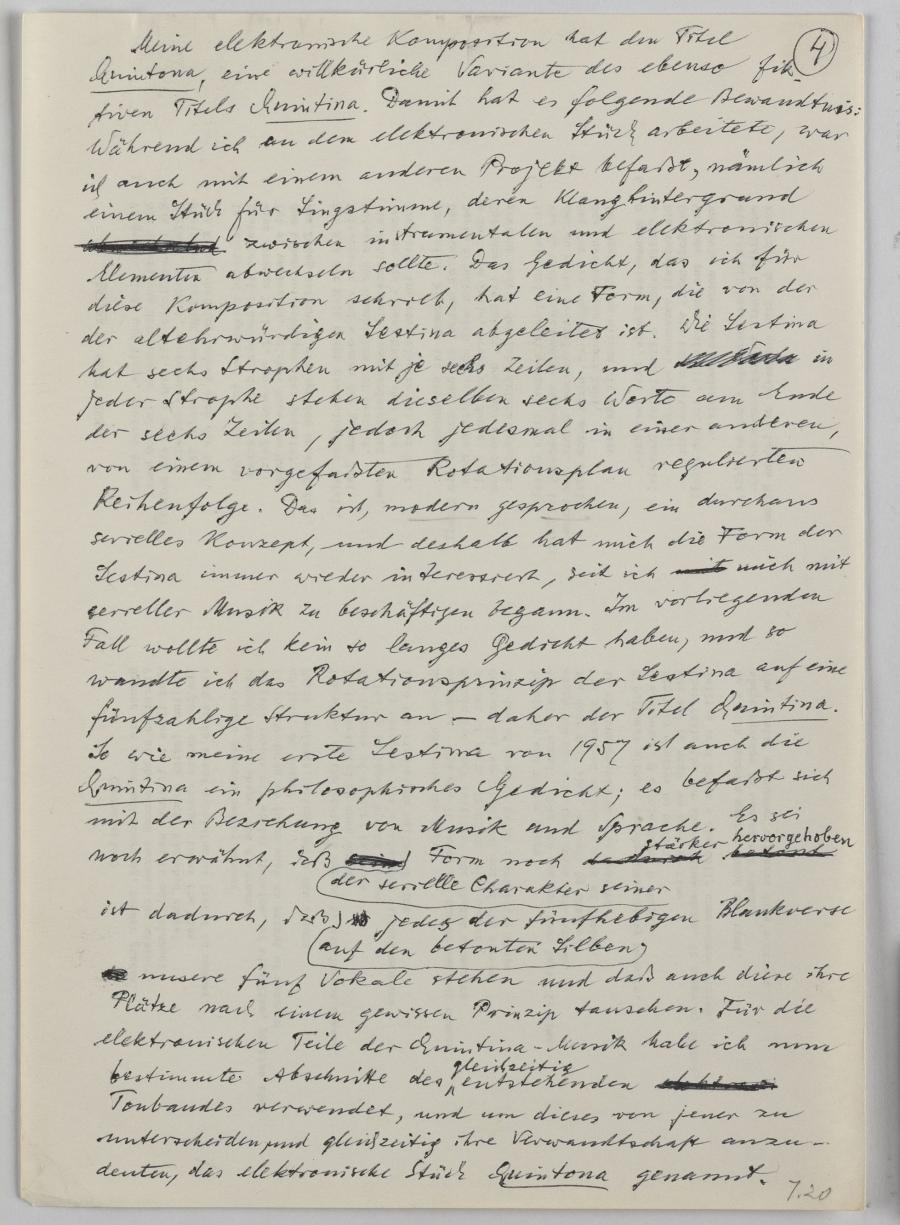 4
Meine elektronische Komposition hat den Titel
Quintona, eine willkürliche Variante des ebenso fik-
tiven Titels Quintina. Damit hat es folgende Bewandtnis:
Während ich an dem elektronischen Stück arbeitete, war
ich auch mit einem anderen Projekt befaßt, nämlich
einem Stück für Singstimme, deren Klanghintergrund
zwischen instrumentalen und elektronischen
Elementen abwechseln sollte. Das Gedicht, das ich für
diese Komposition schrieb, hat eine Form, die von der
der altehrwürdigen Sestina abgeleitet ist. Die Sestina
hat sechs Strophen mit je sechs Zeilen, und in
jeder Strophe stehen dieselben sechs Worte am Ende
der sechs Zeilen, jedoch jedesmal in einer anderen,
von einem vorgefaßten Rotationsplan regulierten
Reihenfolge. Das ist, modern gesprochen, ein durchaus
serielles Konzept, und deshalb hat mich die Form der
Sestina immer wieder interessiert, seit ich mit mich mit
serieller Musik zu beschäftigen begann. Im vorliegenden
Fall wollte ich kein so langes Gedicht haben, und so
wandte ich das Rotationsprinzip der Sestina auf eine
fünfzahlige Struktur an – daher der Titel Quintina.
So wie meine erste Sestina von 1957 ist auch die
Quintina ein philosophisches Gedicht; es befaßt sich
mit der Beziehung von Musik und Sprache. Es sei
stärker hervorgehoben
noch erwähnt, daß Form noch betont
der serielle Charakter seiner
ist dadurch, daß jedes der fünfhebigen Blankverse
auf den betonten Silben
unsere fünf Vokale stehen und daß auch diese ihre
Plätze nach einem gewissen Prinzip tauschen. Für die
elektronischen Teile der Quintina-Musik habe ich nun
gleichzeitig
bestimmte Abschnitte des entstehenden
Tonbandes verwendet, und um dieses von jener zu
unterscheiden, und gleichzeitig ihre Verwandtschaft anzu-
deuten, das elektronische Stück Quintona genannt.
7.20